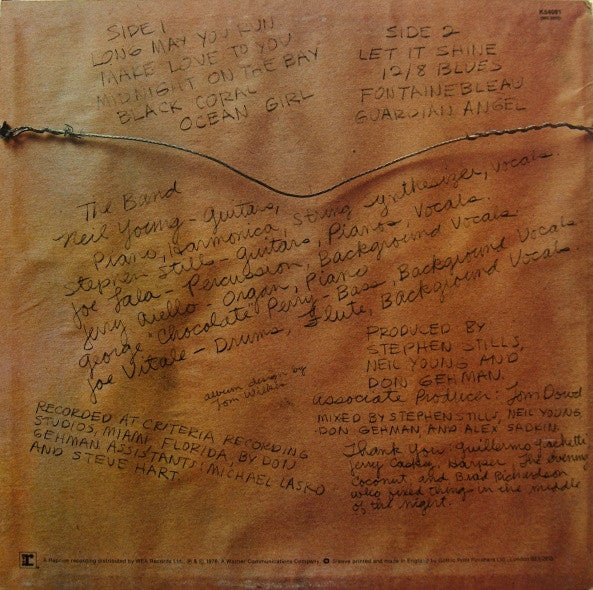 K54081
SIDE 1
LONG MAY YOU RUN
MAKE LOVE TO YOU
MIDNIGHT ON THE BAY
BLACK CORAL
OCEAN GIRL
SIDE 2
LET IT SHINE
12/8 BLUES
FONTAINEBLEAU
GUARDIAN ANGEL
The Band
Neil Young - Guitars,
Piano, Harmonica, String synthesizer, vocals.
Stephen Stills - Guitars, Piano, Vocals.
Joe Lala - Percussion, Background Vocals
Jerry Aiello - Organ, Piano
George "Chocolate" Perry - Bass, Background Vocals
Joe Vitale - Drums, Flute, Background Vocals.
album design by
Tom Wilkes
PRODUCED BY
STEPHEN STILLS,
NEIL YOUNG AND
DON GEHMAN.
Associate Producer: Tom Dowd
MIXED BY STEPHEN STILLS, NEIL YOUNG,
DON GEHMAN AND ALEX SADKIN.
RECORDED AT CRITERIA RECORDING
STUDIOS, MIAMI FLORIDA, BY DON
GEHMAN ASSISTANTS: MICHAEL LASKO
AND STEVE HART.
Thank You: Guillermo
Jerry Harper, The evening
Coconut, and Brad Richardson
who fixed things in the middle
of the night.
r
A Reprise recording distributed by WEA Records Ltd. ℗ & © 1976, A Warner Communications Company. Sleeve printed and made in England by Gothic Print Finishers Ltd., London